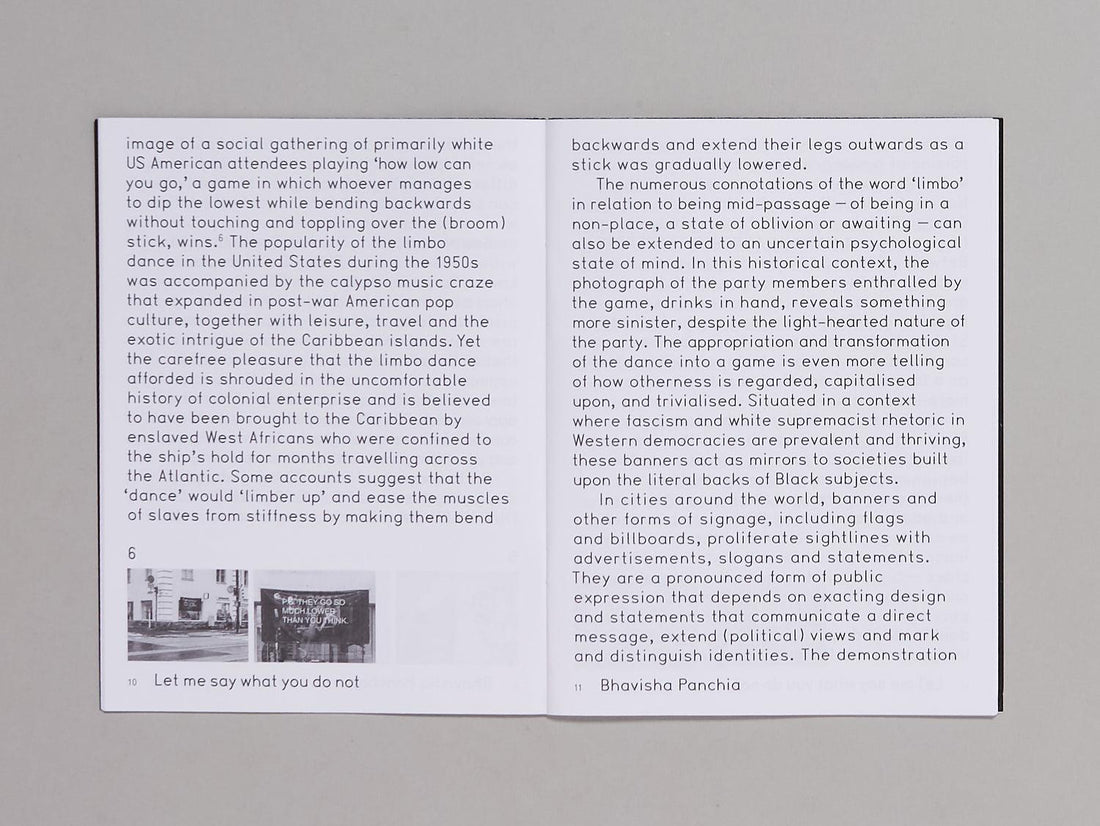 image of a social gathering of primarily white
US American attendees playing ‘how low can
you go,’ a game in which whoever manages
to dip the lowest while bending backwards
without touching and toppling over the (broom)
stick, wins.6 The popularity of the limbo
dance in the United States during the 1950s
was accompanied by the calypso music craze
that expanded in post-war American pop
culture, together with leisure, travel and the
exotic intrigue of the Caribbean islands. Yet
the carefree pleasure that the limbo dance
afforded is shrouded in the uncomfortable
history of colonial enterprise and is believed
to have been brought to the Caribbean by
enslaved West Africans who were confined to
the ship’s hold for months travelling across
the Atlantic. Some accounts suggest that the
‘dance’ would ‘limber up’ and ease the muscles
of slaves from stiffness by making them bend
6
P.S. THEY GO SO
MUCH LOWER
THAN YOU THINK.
10 Let me say what you do not
backwards and extend their legs outwards as a
stick was gradually lowered.
The numerous connotations of the word ‘limbo’
in relation to being mid-passage — of being in a
non-place, a state of oblivion or awaiting — can
also be extended to an uncertain psychological
state of mind. In this historical context, the
photograph of the party members enthralled by
the game, drinks in hand, reveals something
more sinister, despite the light-hearted nature of
the party. The appropriation and transformation
of the dance into a game is even more telling
of how otherness is regarded, capitalised
upon, and trivialised. Situated in a context
where fascism and white supremacist rhetoric in
Western democracies are prevalent and thriving,
these banners act as mirrors to societies built
upon the literal backs of Black subjects.
In cities around the world, banners and
other forms of signage, including flags
and billboards, proliferate sightlines with
advertisements, slogans and statements.
They are a pronounced form of public
expression that depends on exacting design
and statements that communicate a direct
message, extend (political) views and mark
and distinguish identities. The demonstration
11 Bhavisha Panchia